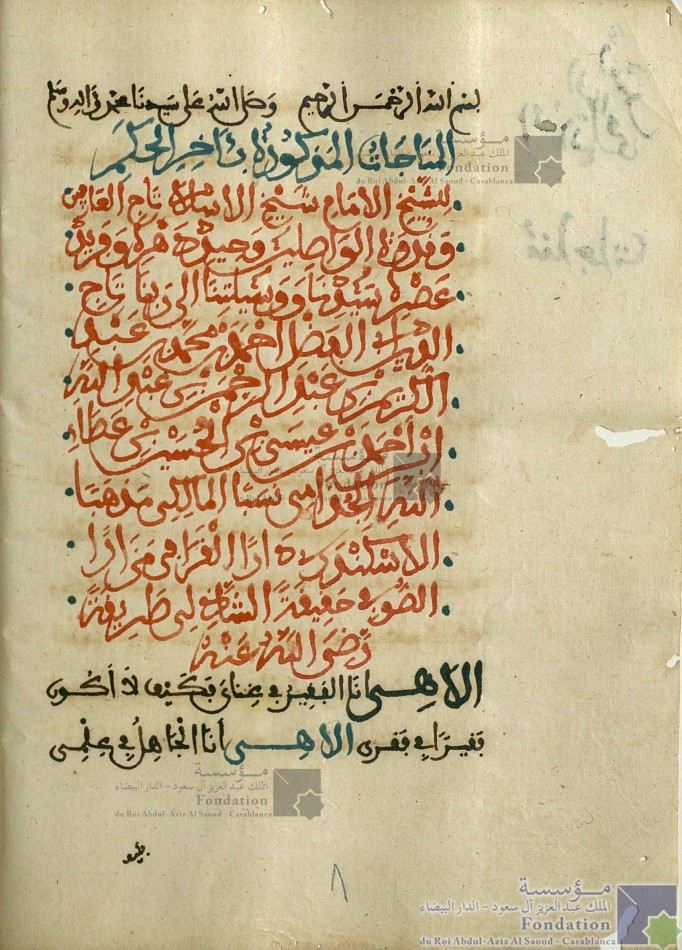 بسم الله الرحمن الرحيم وصلى الله على سيدنا محمد وآله وسلم
المناجات المذكورة بآخر الحكم
للشيخ الإمام شيخ الإسلام تاج العارفين
وقدوة الواصلين وحيد دهره وفريد
عصره سيدنا ووسيلتنا إلى ربنا تاج
الدين أبي الفضل أحمد بن محمد بن عبد
الكريم بن عبد الرحمن بن عبد الله
بن أحمد بن عيسى بن الحسين بن عطاء
الله الجذامي نسبا المالكي مذهبا
الاسكندري دارا القرافي مزارا
الصوفي حقيقة الشاذلي طريقة
رضي الله عنه
الاهي أنا الفقير في غناي فكيف لا أكون
فقيرا في فقري الاهي أنا الجاهل في علمي
٨
مؤسسة
الملك عبد العزيز آل سعود - الدار البيضاء
Fondation
du Roi Abdul-Aziz Al Saoud - Casablanca
مؤسسة
الملك عبد العزيز آل سعود - الدار البيضاء
Fondation
du Roi Abdul-Aziz Al Saoud - Casablanca